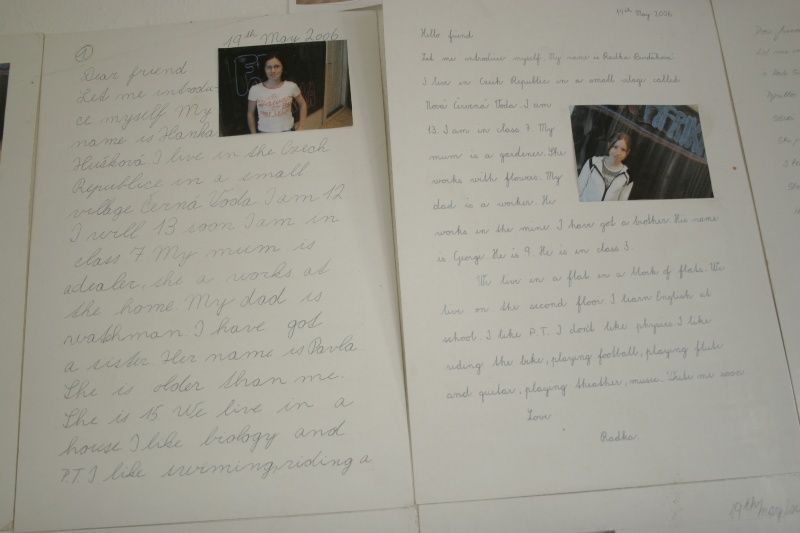 1
19th May 2006
Dear friend
Let me introdu-
ce myself. My
name is Hanka
Hušková. I live in the Czech
Republice in a small
village Černá Voda. I am 12
I will 13 soon. I am in
class 7. My mum is
a dealer, she a works at
the home. My dad is
watchman. I have got
a sister. Her name is Pavla.
She is older than me.
She is 15. We live in a
house. I like biology and
P.T. I like swimming, riding a
19th May 2006
Hello friend
Let me introduce myself. My name is Radka
I live in Czech Republic in a small vilage called
Nová Červená Voda. I am
13. I am in class 7. My
mum is a gardener. She
works with flowers. My
dad is a worker. He
works in the mine. I have got a brother. His name
is George. He is 9. He is in class 3.
We live in a flat in a block of flats. We
live on the second floor. I learn English at
school. I like P.T. I don't like physics. I like
riding the bike, playing football, playing flute
and guitar, playing theather, music. Write me soon.
Love
Radka
19th May